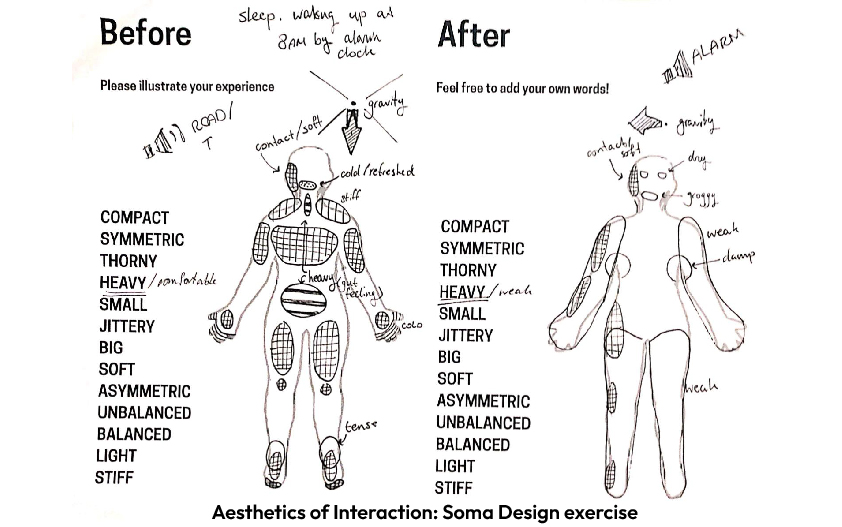 Before
sleep. waking up at
8AM by alarm
clock
Please illustrate your experience
gravity
ROAD/
T
contact/soft
cold/refreshed
stiff
COMPACT
SYMMETRIC
THORNY
HEAVY/comfortable
SMALL
JITTERY
BIG
SOFT
ASYMMETRIC
UNBALANCED
BALANCED
LIGHT
STIFF
heavy (gut
feeling)
cold
tense
After
ALARM
Feel free to add your own words!
gravity
contact/
soft
dry
groggy
COMPACT
SYMMETRIC
THORNY
HEAVY/weak
SMALL
JITTERY
BIG
SOFT
ASYMMETRIC
UNBALANCED
BALANCED
LIGHT
STIFF
weak
damp
weak
Aesthetics of Interaction: Soma Design exercise